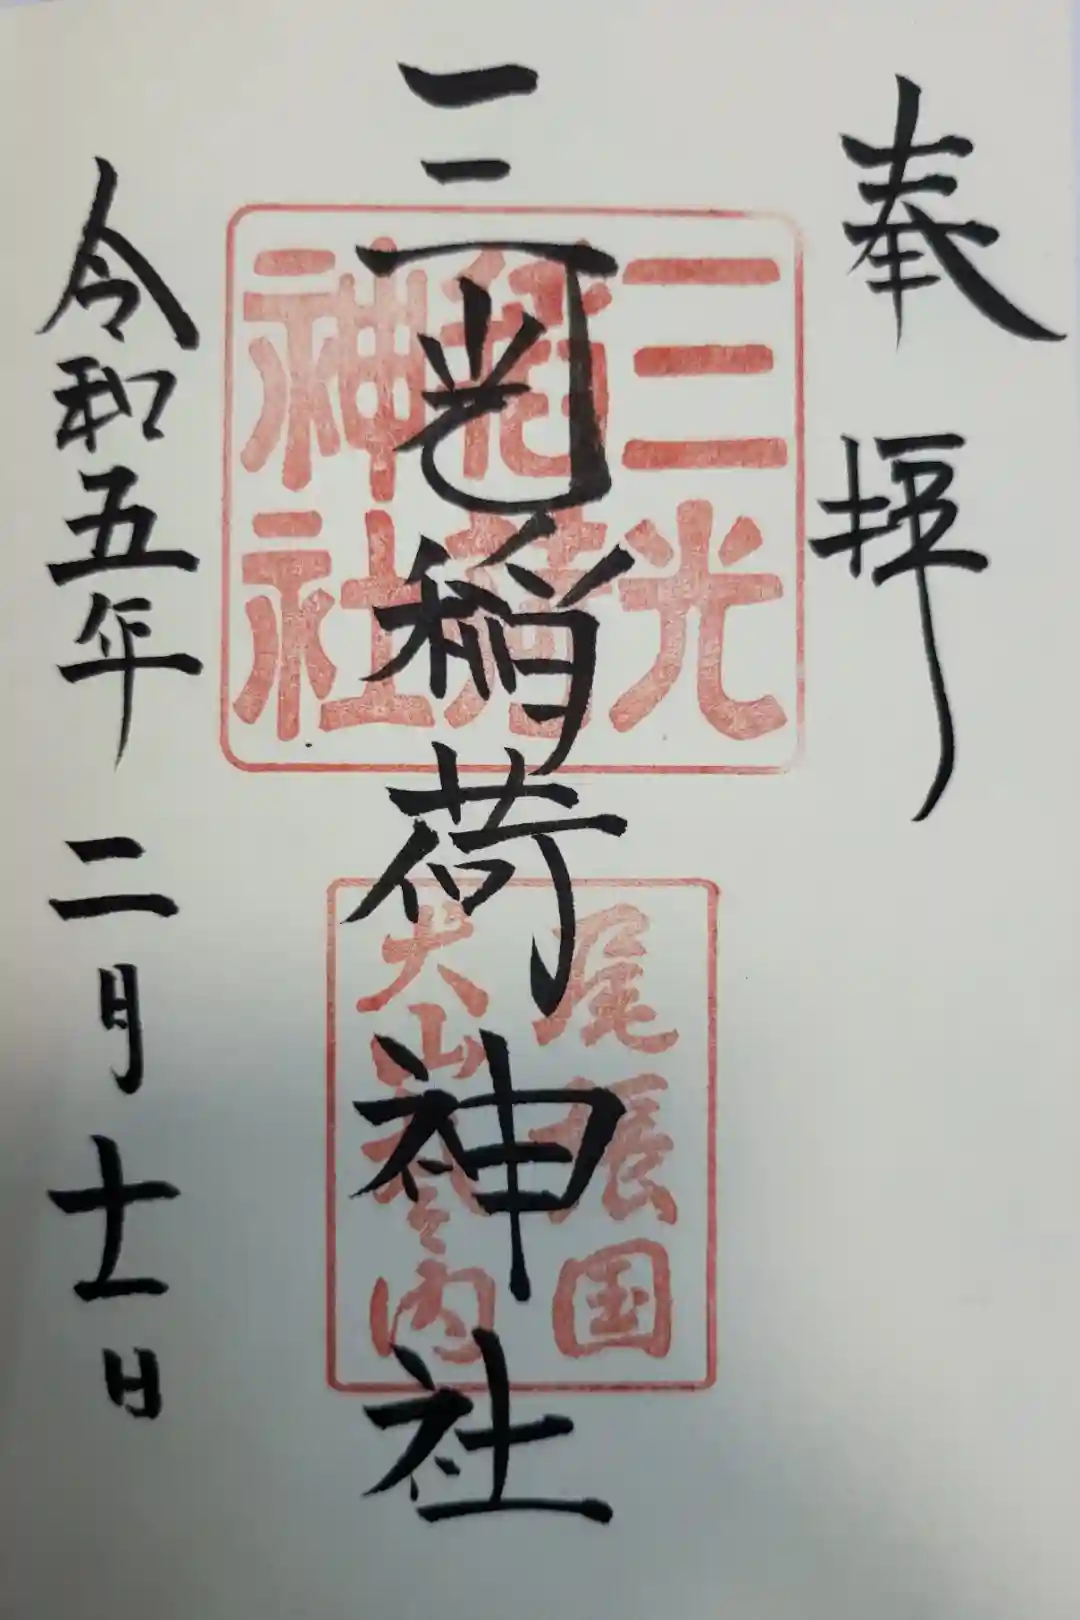 奉拝
三光稲荷神社
令和五年二月十一日
三光
稲荷
神社
尾張国
犬山
内